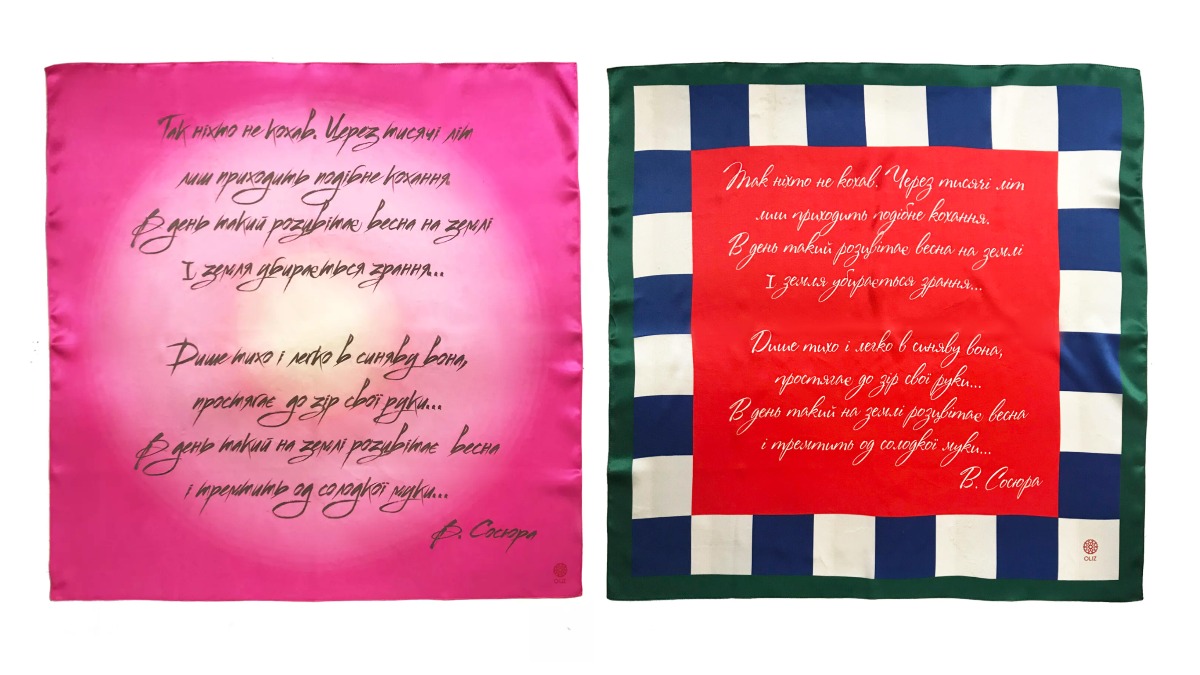 Так ніхто не кохав. Через тисячі літ
лиш приходить подібне кохання.
В день такий розцвітає весна на землі
І земля убирається зрання...
Дише тихо і легко в синяву вона,
простягає до зір свої руки...
В день такий на землі розцвітає весна
і тремтить од солодкої муки...
В. Сосюра
OLIZ
Так ніхто не кохав. Через тисячі літ
лиш приходить подібне кохання.
В день такий розцвітає весна на землі
І земля убирається зрання...
Дише тихо і легко в синяву вона,
простягає до зір свої руки...
В день такий на землі розцвітає весна
і тремтить од солодкої муки...
В. Сосюра
OLIZ